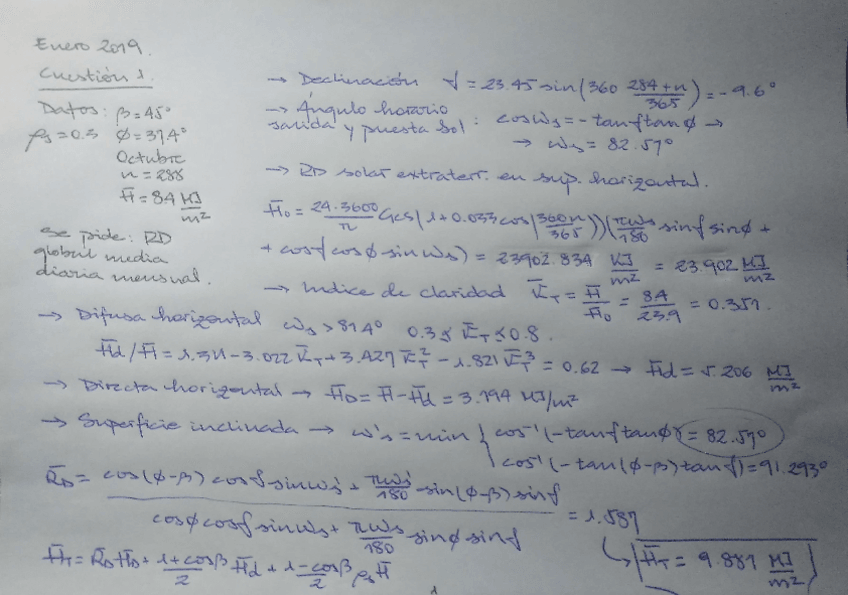 Enero 2019.
Cuestión 1.
Datos: β = 45°
ρs = 0.3 φ = 37.4°
Octubre
n = 288
H̄ = 8.4 MJ/m²
se pide: RD
global media
diaria mensual.
→ Declinación δ = 23.45 sin(360 (284+n)/365) = -9.6°
→ Ángulo horario
salida y puesta Sol: cos ωs = -tanδ tanφ →
→ ωs = 82.57°
→ RD solar extraterr. en sup. horizontal.
H̄o = 24·3600/π Gcs(1+0.033cos(360n/365))(πωs/180 sinδ sinφ +
+ cosδ cosφ sin ωs) = 23902.834 KJ/m² = 23.902 MJ/m²
→ Indice de claridad K̄T = H̄/H̄o = 8.4/23.9 = 0.351.
→ Difusa horizontal ωs > 81.4° 0.3 ≤ K̄T ≤ 0.8.
H̄d/H̄ = 1.311 - 3.022 K̄T + 3.427 K̄T² - 1.821 K̄T³ = 0.62 → H̄d = 5.206 MJ/m²
→ Directa horizontal → H̄D = H̄ - H̄d = 3.194 MJ/m²
→ Superficie inclinada → ω's = min { cos⁻¹(-tanδ tanφ) = 82.57°
cos⁻¹(-tan(φ-β) tanδ) = 91.293°
R̄D = (cos(φ-β) cosδ sin ω's + πω's/180 sin(φ-β) sinδ) / (cosφ cosδ sin ωs + πωs/180 sinφ sinδ) = 1.587
H̄T = R̄D H̄D + (1+cosβ)/2 H̄d + (1-cosβ)/2 ρs H̄
↳ H̄T = 9.881 MJ/m²
1